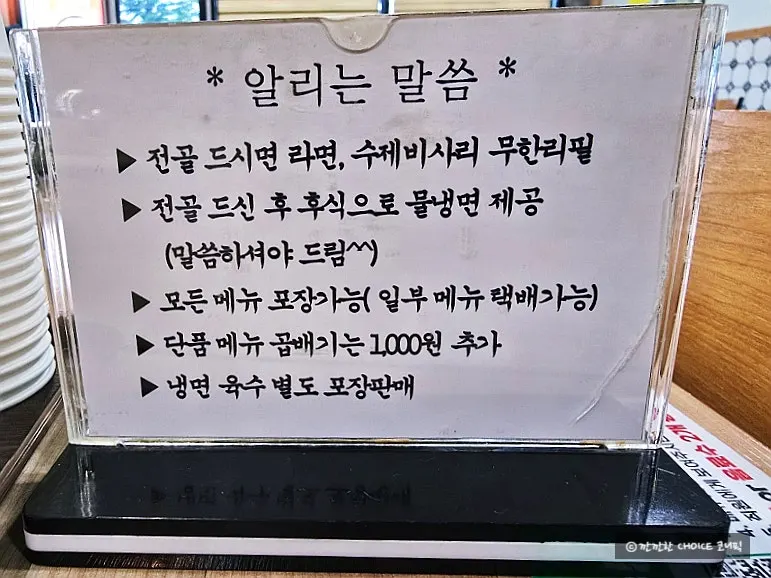 * 알리는 말씀 *
▶ 전골 드시면 라면, 수제비사리 무한리필
▶ 전골 드신 후 후식으로 물냉면 제공
(말씀하셔야 드림^^)
▶ 모든 메뉴 포장가능( 일부 메뉴 택배가능)
▶ 단품 메뉴 곱배기는 1,000원 추가
▶ 냉면 육수 별도 포장판매
ⓒ 깐깐한 CHOICE 코너픽